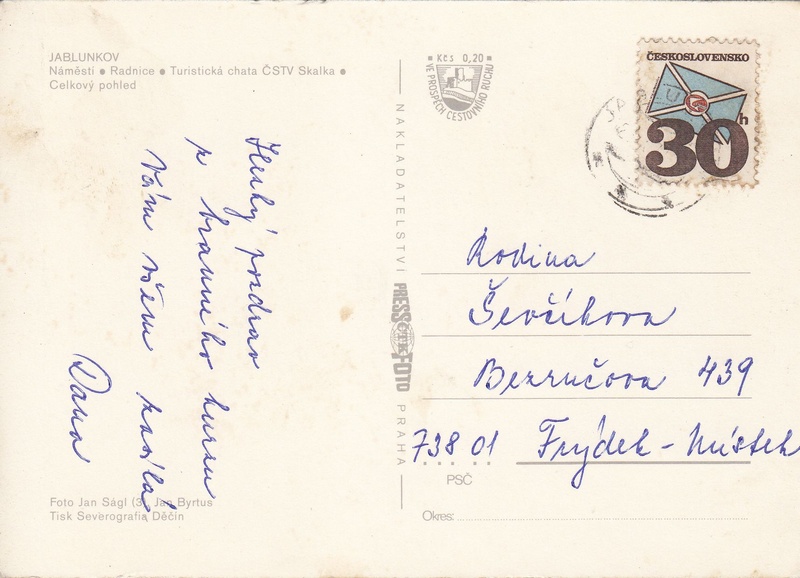 JABLUNKOV
Náměstí ● Radnice ● Turistická chata ČSTV Skalka ●
Celkový pohled
Hezký pozdrav
z branného kursu
Vám všem posílá
Dana
Foto Jan Ságl (3), Jan Byrtus
Tisk Severografia Děčín
NAKLADATELSTVÍ PRESSFOTO PRAHA
ČTK
Kčs 0,20
VE PROSPĚCH CESTOVNÍHO RUCHU
ČESKOSLOVENSKO
30h
Rodina
Ševčíkova
Bezručova 439
738 01 Frýdek-Místek
PSČ
Okres: